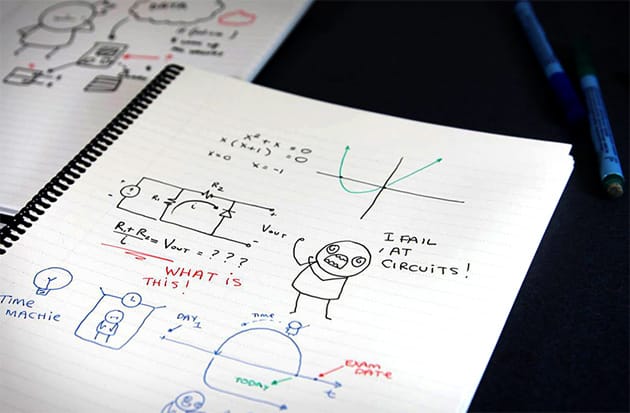 DATA
x² + x = 0
x(x+1) = 0
x=0 x = -1
R₂
R₁
L
+
-
VOUT
R₁+R₂/L = VOUT = ???
WHAT IS
THIS!
I FAIL
AT
CIRCUITS!
TIME
MACHIE
DAY 1
TIME
TODAY
EXAM
DATE
t